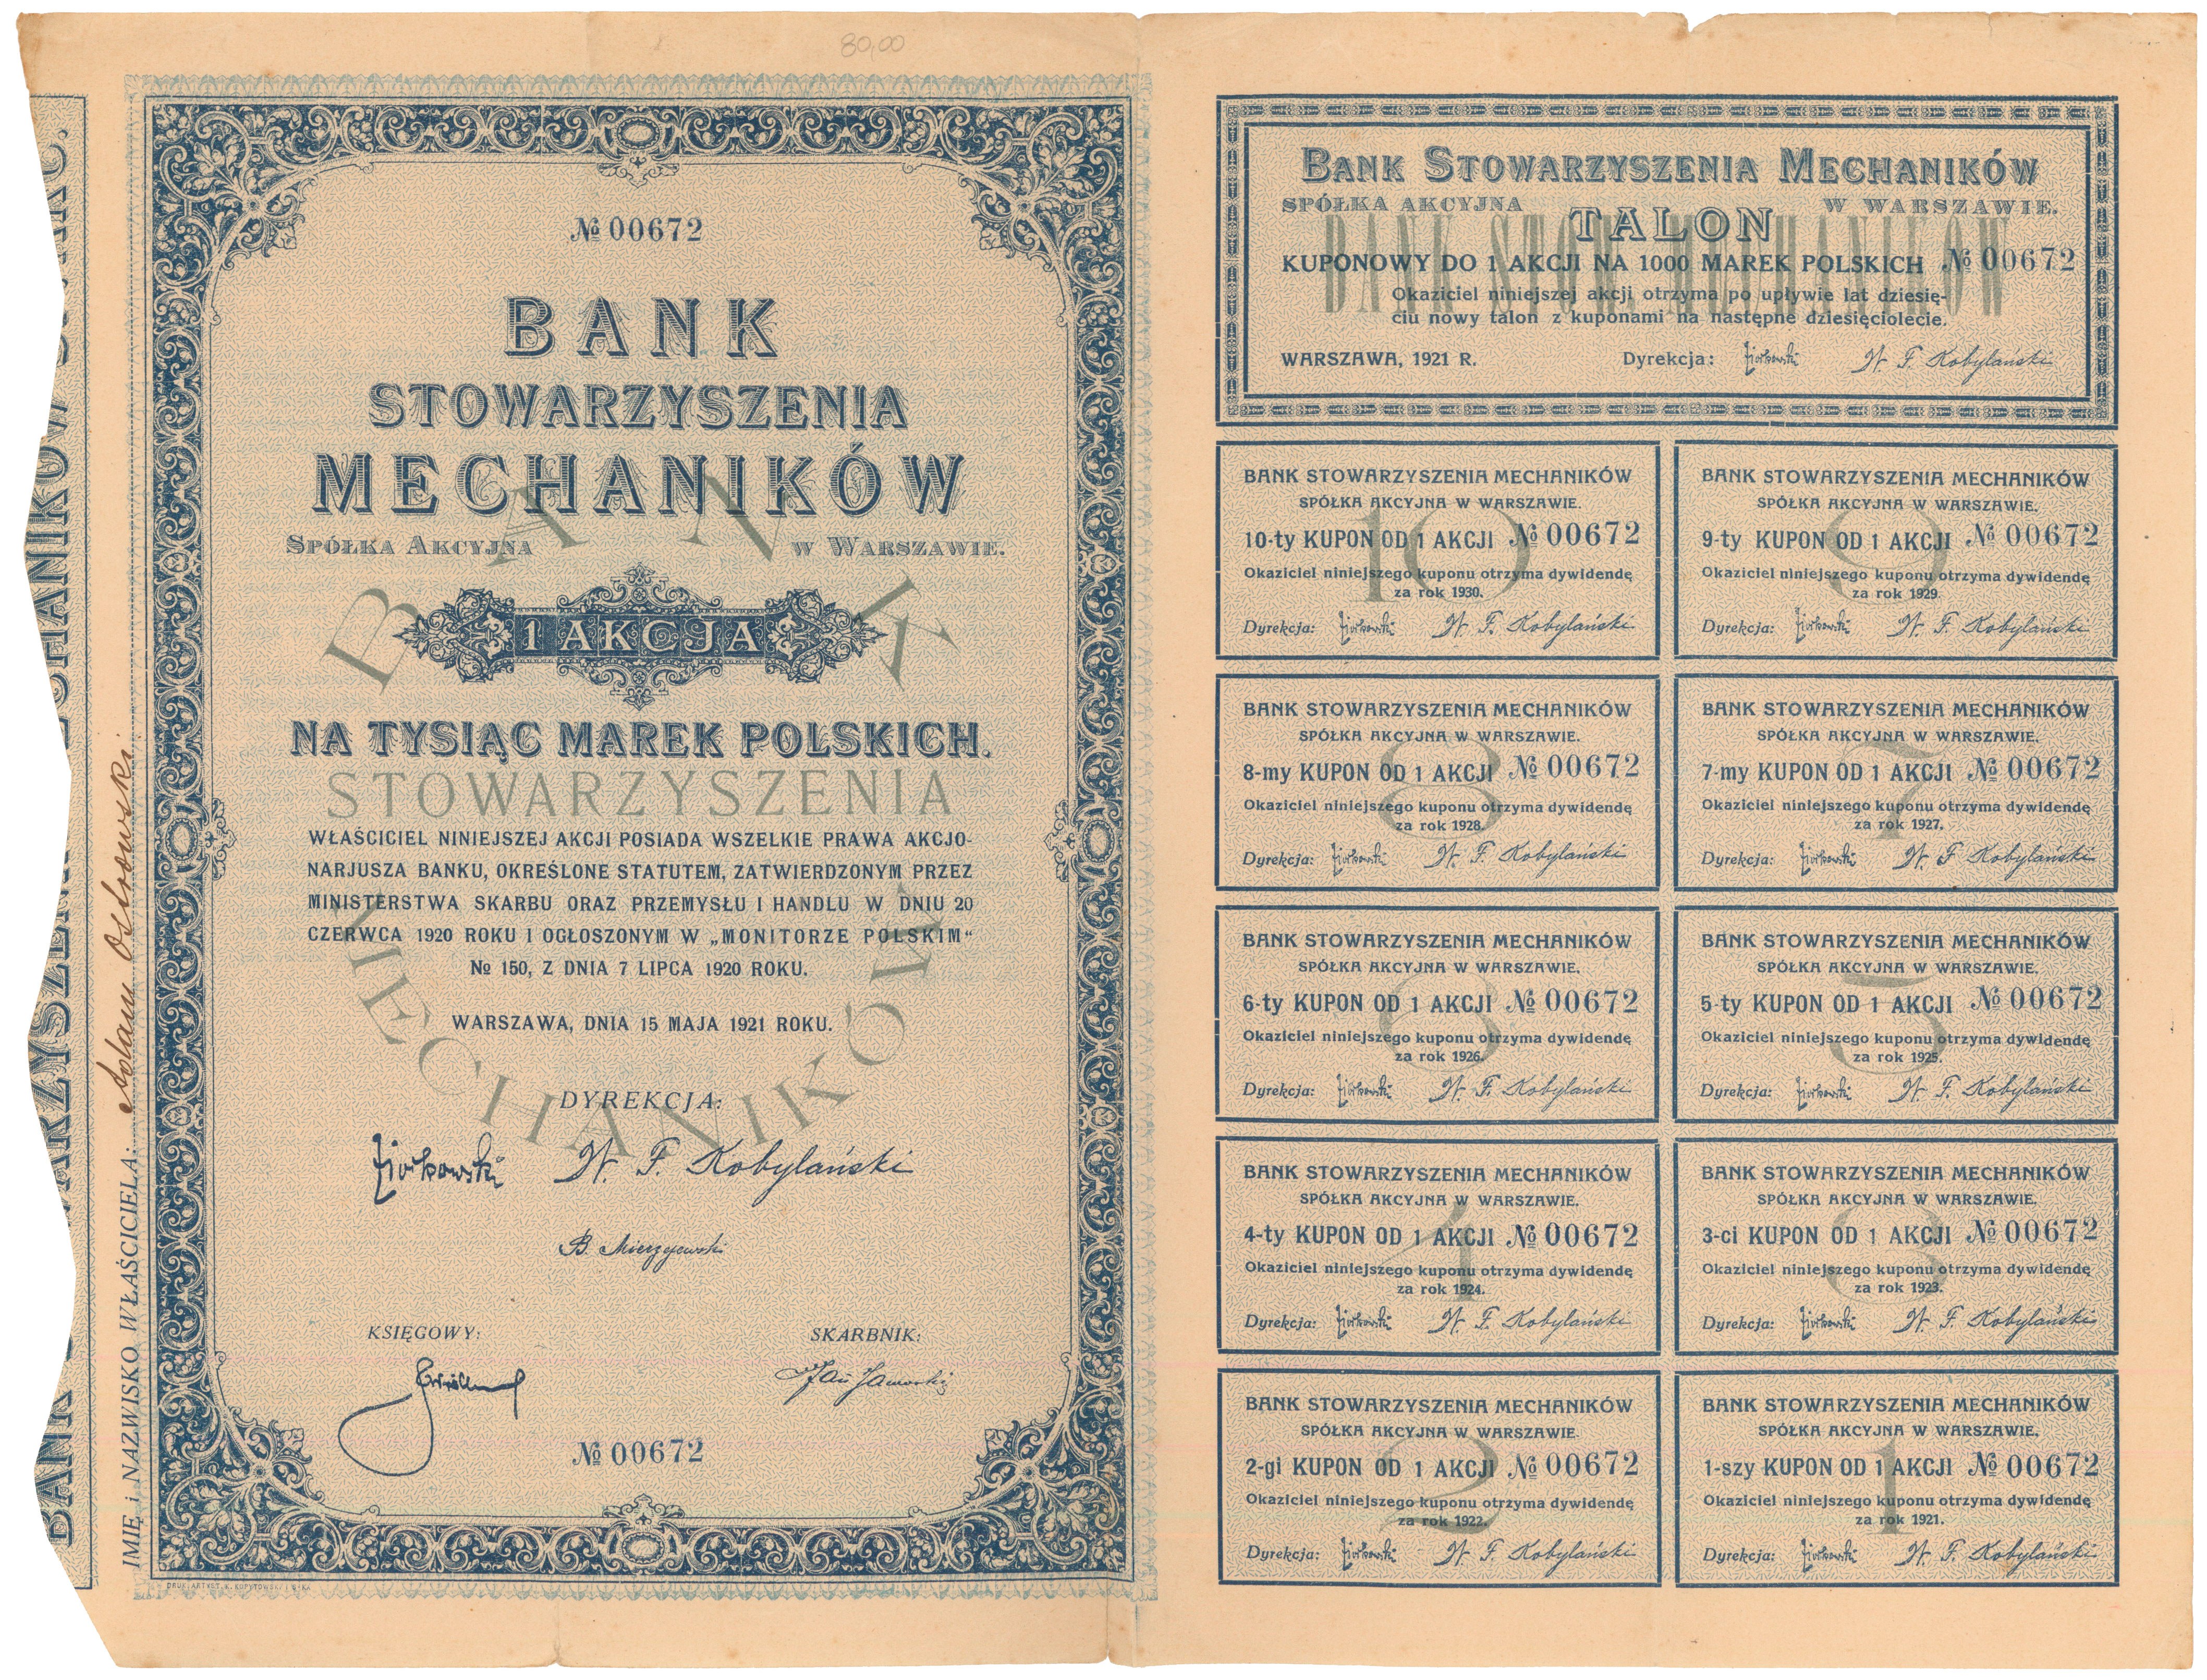 80,00
№ 00672
BANK
STOWARZYSZENIA
MECHANIKÓW
SPÓŁKA AKCYJNA W WARSZAWIE.
1 AKCJA
NA TYSIĄC MAREK POLSKICH.
BANK
STOWARZYSZENIA
MECHANIKÓW
WŁAŚCICIEL NINIEJSZEJ AKCJI POSIADA WSZELKIE PRAWA AKCJO-
NARJUSZA BANKU, OKREŚLONE STATUTEM, ZATWIERDZONYM PRZEZ
MINISTERSTWA SKARBU ORAZ PRZEMYSŁU I HANDLU W DNIU 20
CZERWCA 1920 ROKU I OGŁOSZONYM W „MONITORZE POLSKIM“
№ 150, Z DNIA 7 LIPCA 1920 ROKU.
WARSZAWA, DNIA 15 MAJA 1921 ROKU.
DYREKCJA:
Ziołkowski W. F. Kobylański
B. Mierzyjewski
KSIĘGOWY: SKARBNIK:
Jan Jaworski
№ 00672
DRUK. ARTYST. K. KOPYTOWSKI I S-KA
IMIĘ i NAZWISKO WŁAŚCICIELA: Adam Ostrowski
BANK
BANK STOWARZYSZENIA MECHANIKÓW
SPÓŁKA AKCYJNA W WARSZAWIE.
TALON
BANK STOW. MECHANIKÓW
KUPONOWY DO 1 AKCJI NA 1000 MAREK POLSKICH № 00672
Okaziciel niniejszej akcji otrzyma po upływie lat dziesię-
ciu nowy talon z kuponami na następne dziesięciolecie.
WARSZAWA, 1921 R. Dyrekcja: Ziołkowski W. F. Kobylański
BANK STOWARZYSZENIA MECHANIKÓW
SPÓŁKA AKCYJNA W WARSZAWIE.
10
10-ty KUPON OD 1 AKCJI № 00672
Okaziciel niniejszego kuponu otrzyma dywidendę
za rok 1930.
Dyrekcja: Ziołkowski W. F. Kobylański
BANK STOWARZYSZENIA MECHANIKÓW
SPÓŁKA AKCYJNA W WARSZAWIE.
9
9-ty KUPON OD 1 AKCJI № 00672
Okaziciel niniejszego kuponu otrzyma dywidendę
za rok 1929.
Dyrekcja: Ziołkowski W. F. Kobylański
BANK STOWARZYSZENIA MECHANIKÓW
SPÓŁKA AKCYJNA W WARSZAWIE.
8
8-my KUPON OD 1 AKCJI № 00672
Okaziciel niniejszego kuponu otrzyma dywidendę
za rok 1928.
Dyrekcja: Ziołkowski W. F. Kobylański
BANK STOWARZYSZENIA MECHANIKÓW
SPÓŁKA AKCYJNA W WARSZAWIE.
7
7-my KUPON OD 1 AKCJI № 00672
Okaziciel niniejszego kuponu otrzyma dywidendę
za rok 1927.
Dyrekcja: Ziołkowski W. F. Kobylański
BANK STOWARZYSZENIA MECHANIKÓW
SPÓŁKA AKCYJNA W WARSZAWIE.
6
6-ty KUPON OD 1 AKCJI № 00672
Okaziciel niniejszego kuponu otrzyma dywidendę
za rok 1926.
Dyrekcja: Ziołkowski W. F. Kobylański
BANK STOWARZYSZENIA MECHANIKÓW
SPÓŁKA AKCYJNA W WARSZAWIE.
5
5-ty KUPON OD 1 AKCJI № 00672
Okaziciel niniejszego kuponu otrzyma dywidendę
za rok 1925.
Dyrekcja: Ziołkowski W. F. Kobylański
BANK STOWARZYSZENIA MECHANIKÓW
SPÓŁKA AKCYJNA W WARSZAWIE.
4
4-ty KUPON OD 1 AKCJI № 00672
Okaziciel niniejszego kuponu otrzyma dywidendę
za rok 1924.
Dyrekcja: Ziołkowski W. F. Kobylański
BANK STOWARZYSZENIA MECHANIKÓW
SPÓŁKA AKCYJNA W WARSZAWIE.
3
3-ci KUPON OD 1 AKCJI № 00672
Okaziciel niniejszego kuponu otrzyma dywidendę
za rok 1923.
Dyrekcja: Ziołkowski W. F. Kobylański
BANK STOWARZYSZENIA MECHANIKÓW
SPÓŁKA AKCYJNA W WARSZAWIE.
2
2-gi KUPON OD 1 AKCJI № 00672
Okaziciel niniejszego kuponu otrzyma dywidendę
za rok 1922.
Dyrekcja: Ziołkowski W. F. Kobylański
BANK STOWARZYSZENIA MECHANIKÓW
SPÓŁKA AKCYJNA W WARSZAWIE.
1
1-szy KUPON OD 1 AKCJI № 00672
Okaziciel niniejszego kuponu otrzyma dywidendę
za rok 1921.
Dyrekcja: Ziołkowski W. F. Kobylański